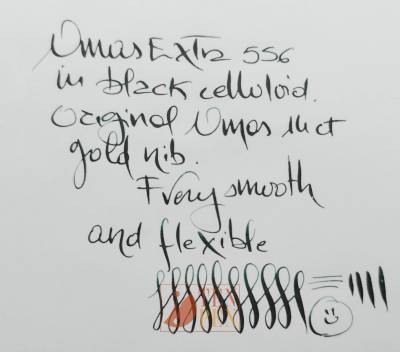 Omas Extra 556
in black celluloid.
Original Omas 14 ct
gold nib.
F very smooth
and flexible